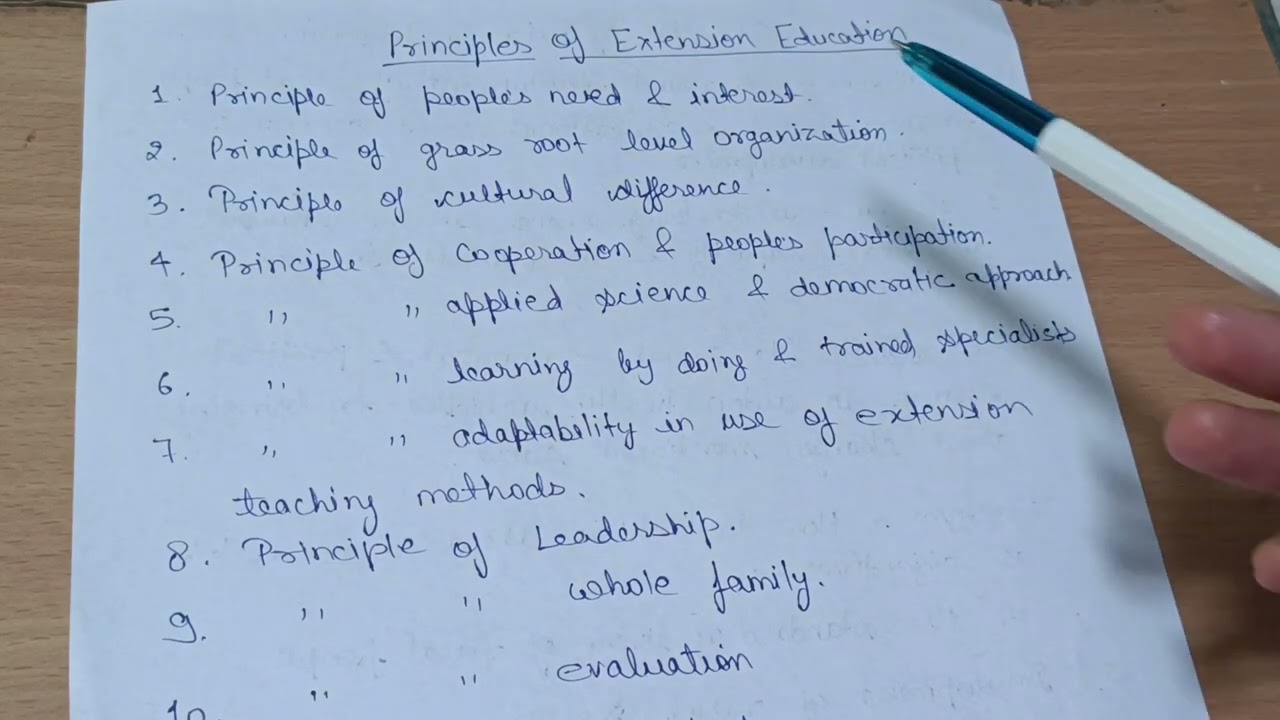 Principles of Extension Education
1. Principle of people's need & interest.
2. Principle of grass root level organization.
3. Principle of cultural difference.
4. Principle of Cooperation & peoples participation.
5. " " applied science & democratic approach
6. " " learning by doing & trained specialists
7. " " adaptability in use of extension
teaching methods.
8. Principle of Leadership.
9. " " whole family.
10 " " evaluation